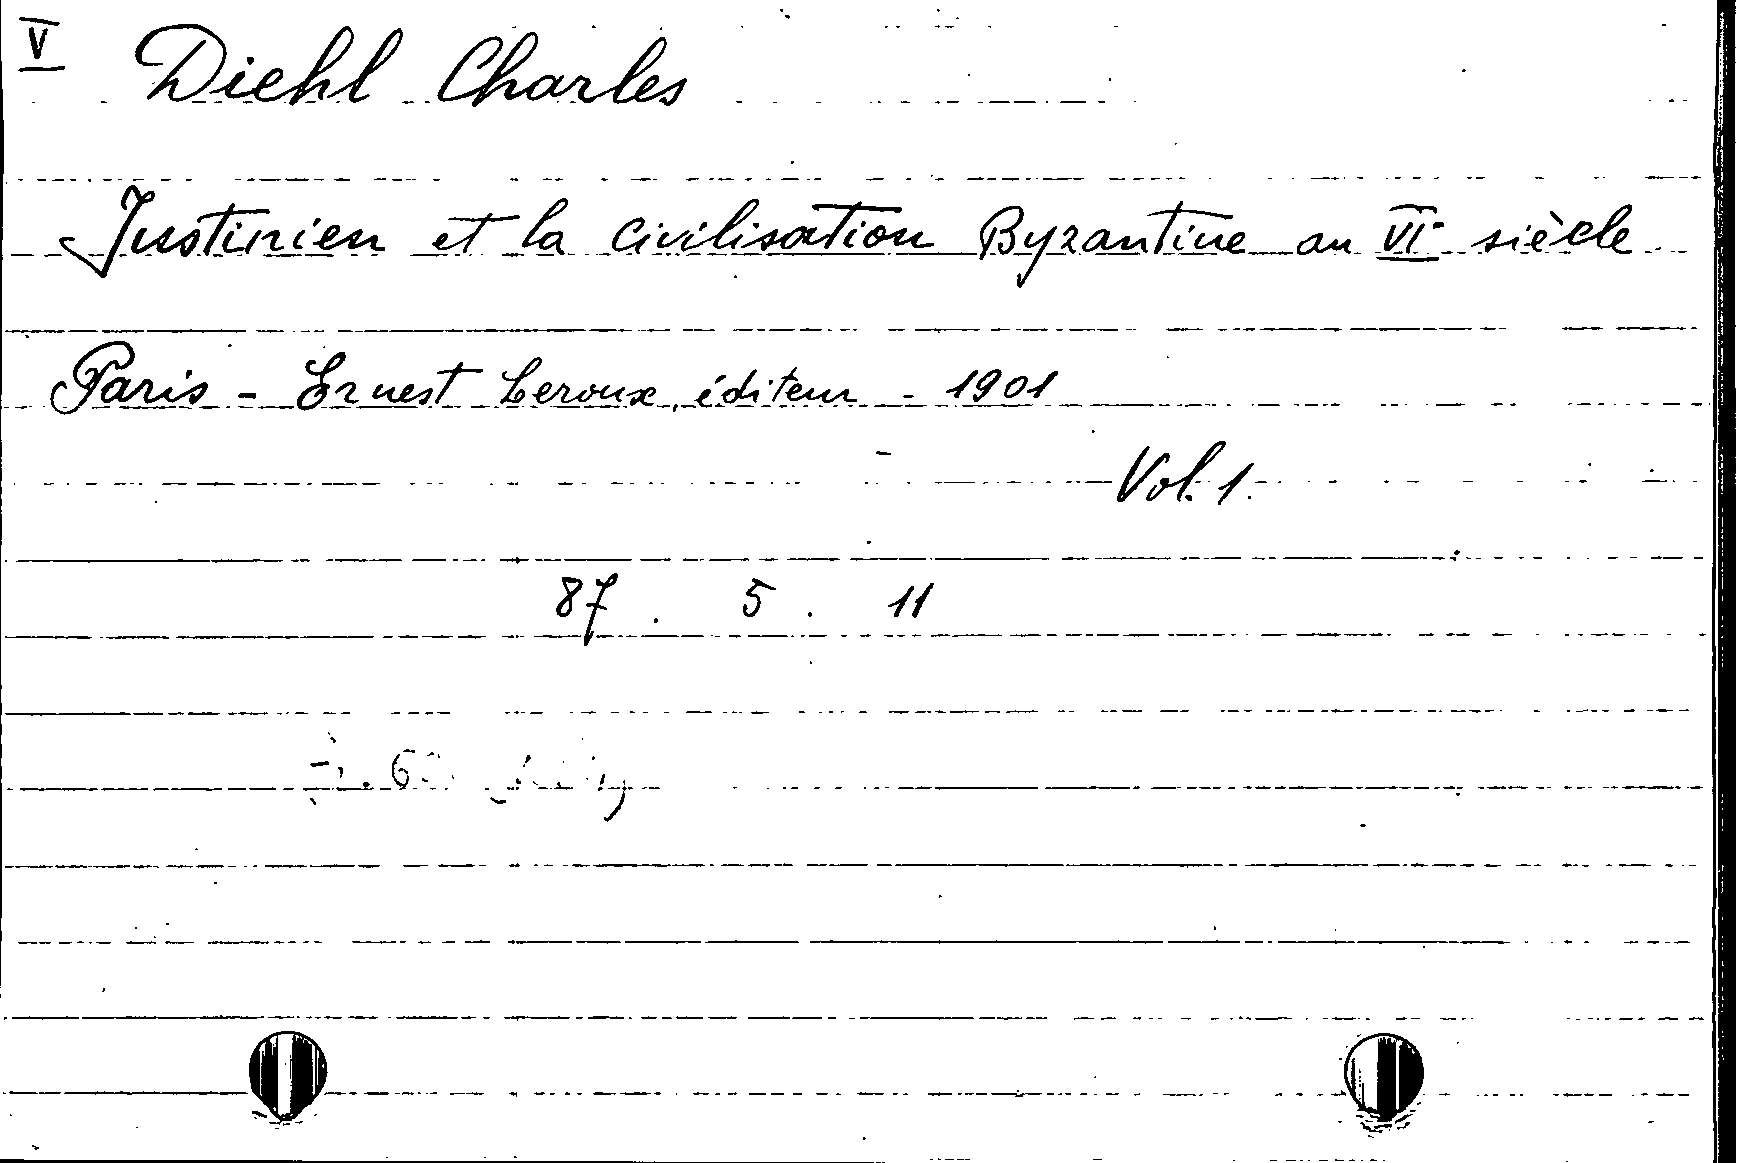 V Diehl Charles
Justinien et la civilisation Byzantine au VIe siècle
Paris - Ernest Leroux, éditeur - 1901
Vol. 1.
87 . 5 . 11